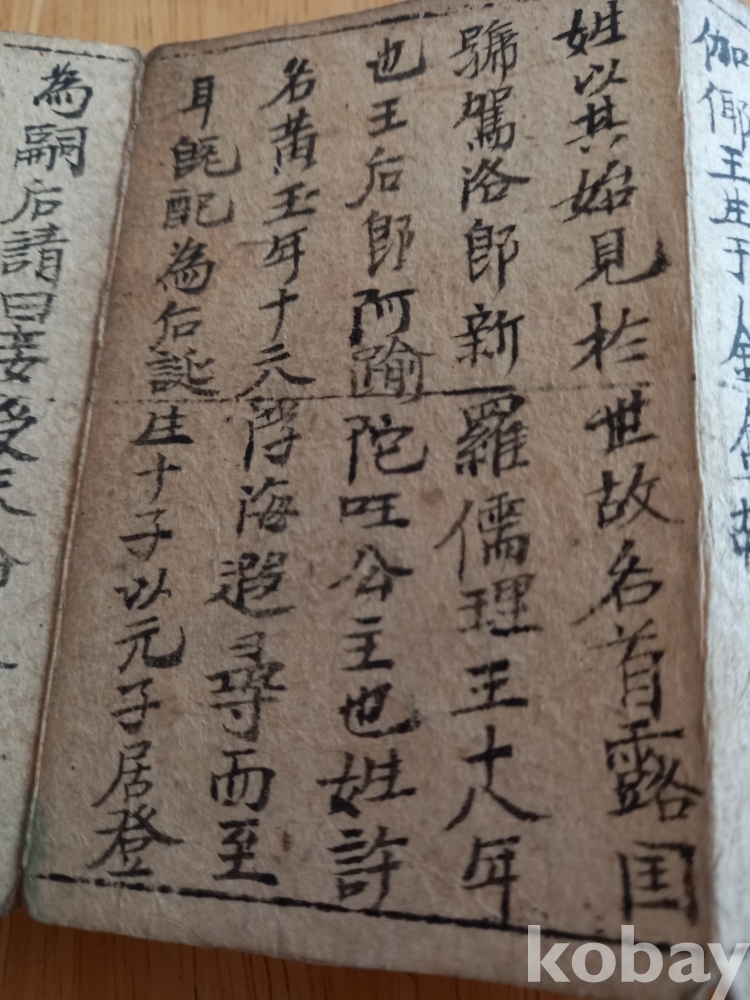 伽倻王生于金
姓以其始見於世故名首露国
號駕洛即新羅儒理王十八年
也王后即阿踰陀吐公主也姓許
名黃玉年十六浮海遐尋而至
耳旣配為后誕生十子以元子居登
為嗣后請曰妾
kobay